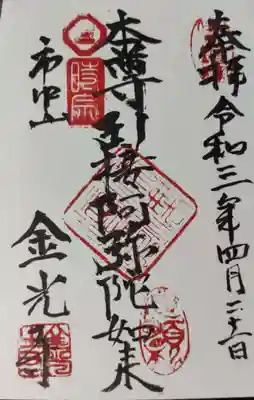 奉拝 令和三年四月二十一日
本尊 接阿弥陀如来
市中山
時宗
金光寺